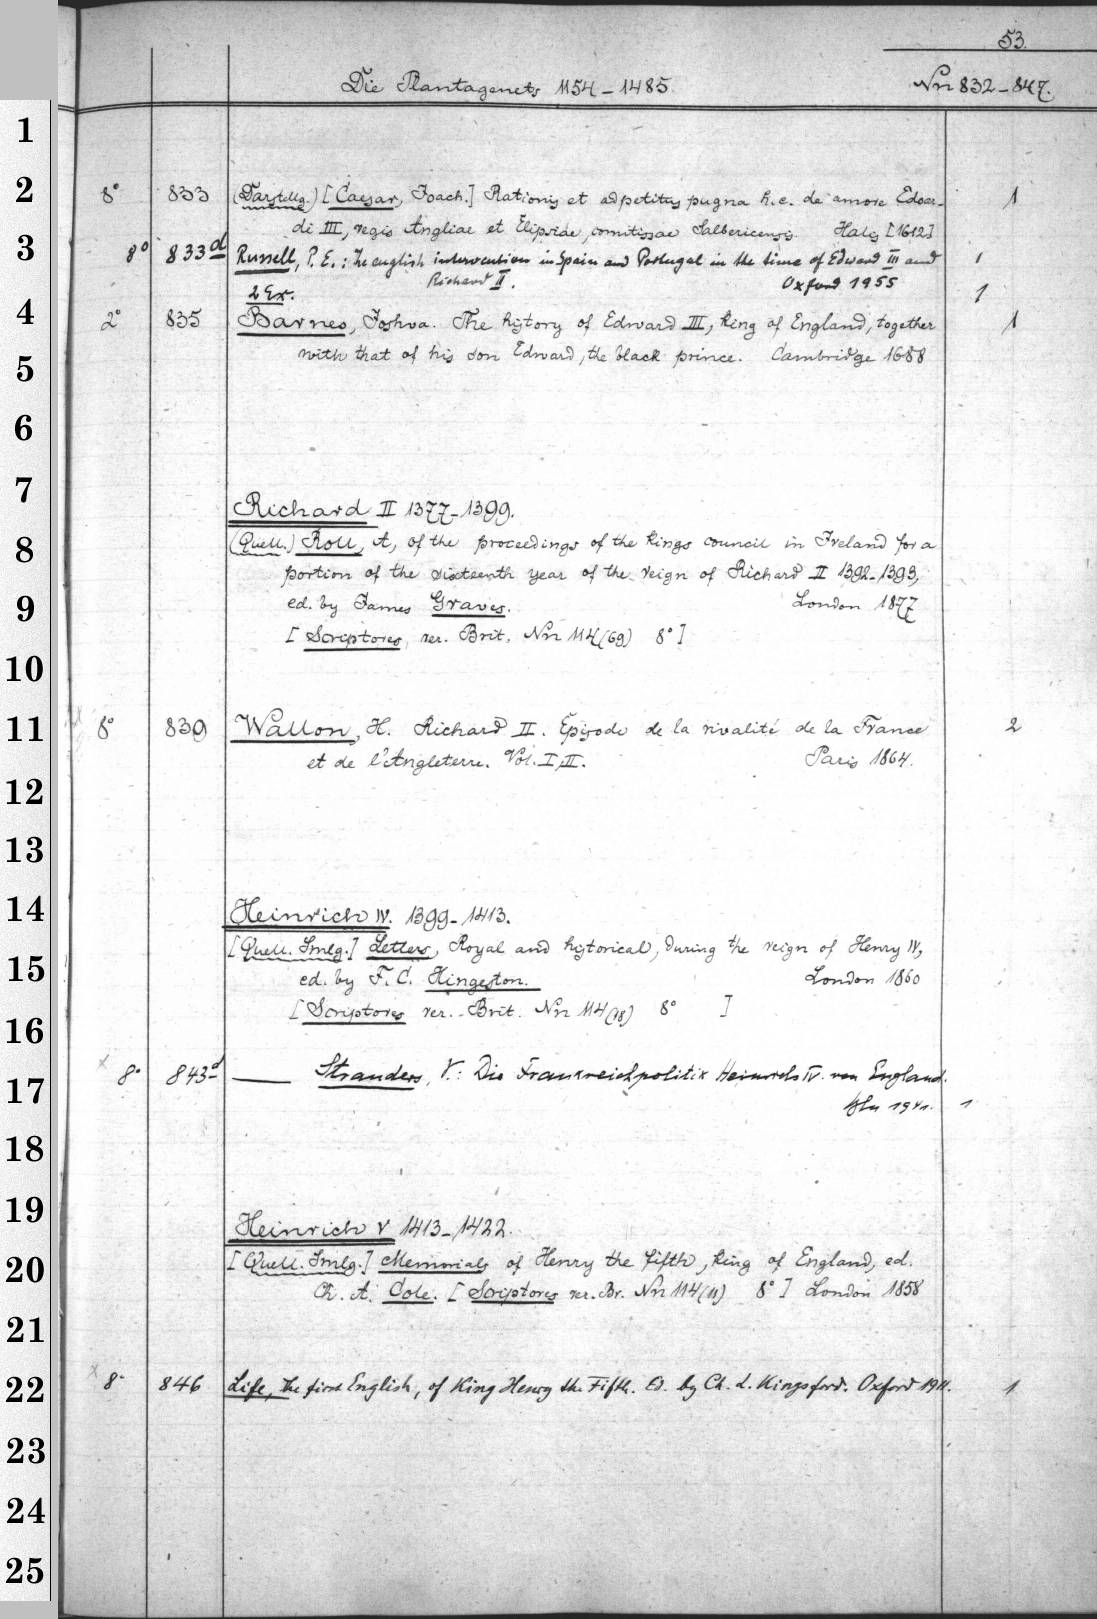 53.
Die Plantagenets 1154-1485. Nrr 832-847.
1
2
3
4
5
6
7
8
9
10
11
12
13
14
15
16
17
18
19
20
21
22
23
24
25
8° 833 (Darstellg.) [Caesar, Joach.] Rationis et adpetitus pugna h.e. de amore Edoar- 1
di III, regis Angliae et Elipsiae, comitissae Salbericensis. Halis [1612]
8° 833d Russell, P. E.: The english intervention in Spain and Portugal in the time of Edward III and 1
Richard II. Oxford 1955
2 Ex. 1
2° 835 Barnes, Joshua. The history of Edward III, king of England, together 1
with that of his son Edward, the black prince. Cambridge 1688
Richard II 1377-1399.
(Quell.) Roll, A, of the proceedings of the kings council in Ireland for a
portion of the sixteenth year of the reign of Richard II 1392-1393,
ed. by James Graves. London 1877
[Scriptores rer. Brit. Nrr 114(69) 8°]
8° 839 Wallon, H. Richard II. Épisode de la rivalité de la France 2
et de l'Angleterre. Vol. I, II. Paris 1864.
Heinrich IV. 1399-1413.
[Quell. Smlg.] Letters, Royal and historical, during the reign of Henry IV,
ed. by F. C. Hingeston. London 1860
[Scriptores rer. Brit. Nrr 114(18) 8° ]
x 8° 843d — Stranders, V.: Die Frankreichpolitik Heinrichs IV. von England.
Kln 1941. 1
Heinrich V 1413-1422.
[Quell. Smlg.] Memorials of Henry the fifth, king of England, ed.
Ch. A. Cole. [Scriptores rer. Br. Nrr 114(11) 8°] London 1858
x 8° 846 Life, The first English, of King Henry the Fifth. Ed. by Ch. L. Kingsford. Oxford 1911. 1